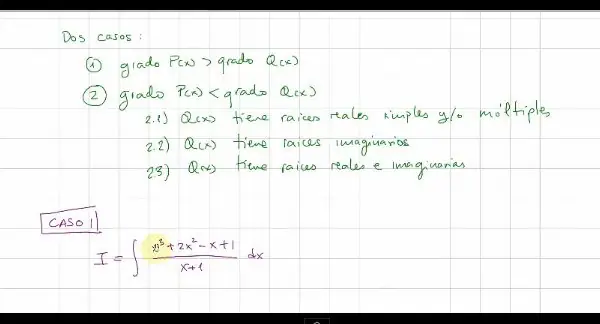 Dos casos :
① grado P(x) > grado Q(x)
② grado P(x) < grado Q(x)
2.1) Q(x) tiene raices reales simples y/o múltiples
2.2) Q(x) tiene raices imaginarios
23) Q(x) tiene raices reales e imaginarias
CASO 1
I = ∫ (x³ + 2x² - x + 1)/(x+1) dx